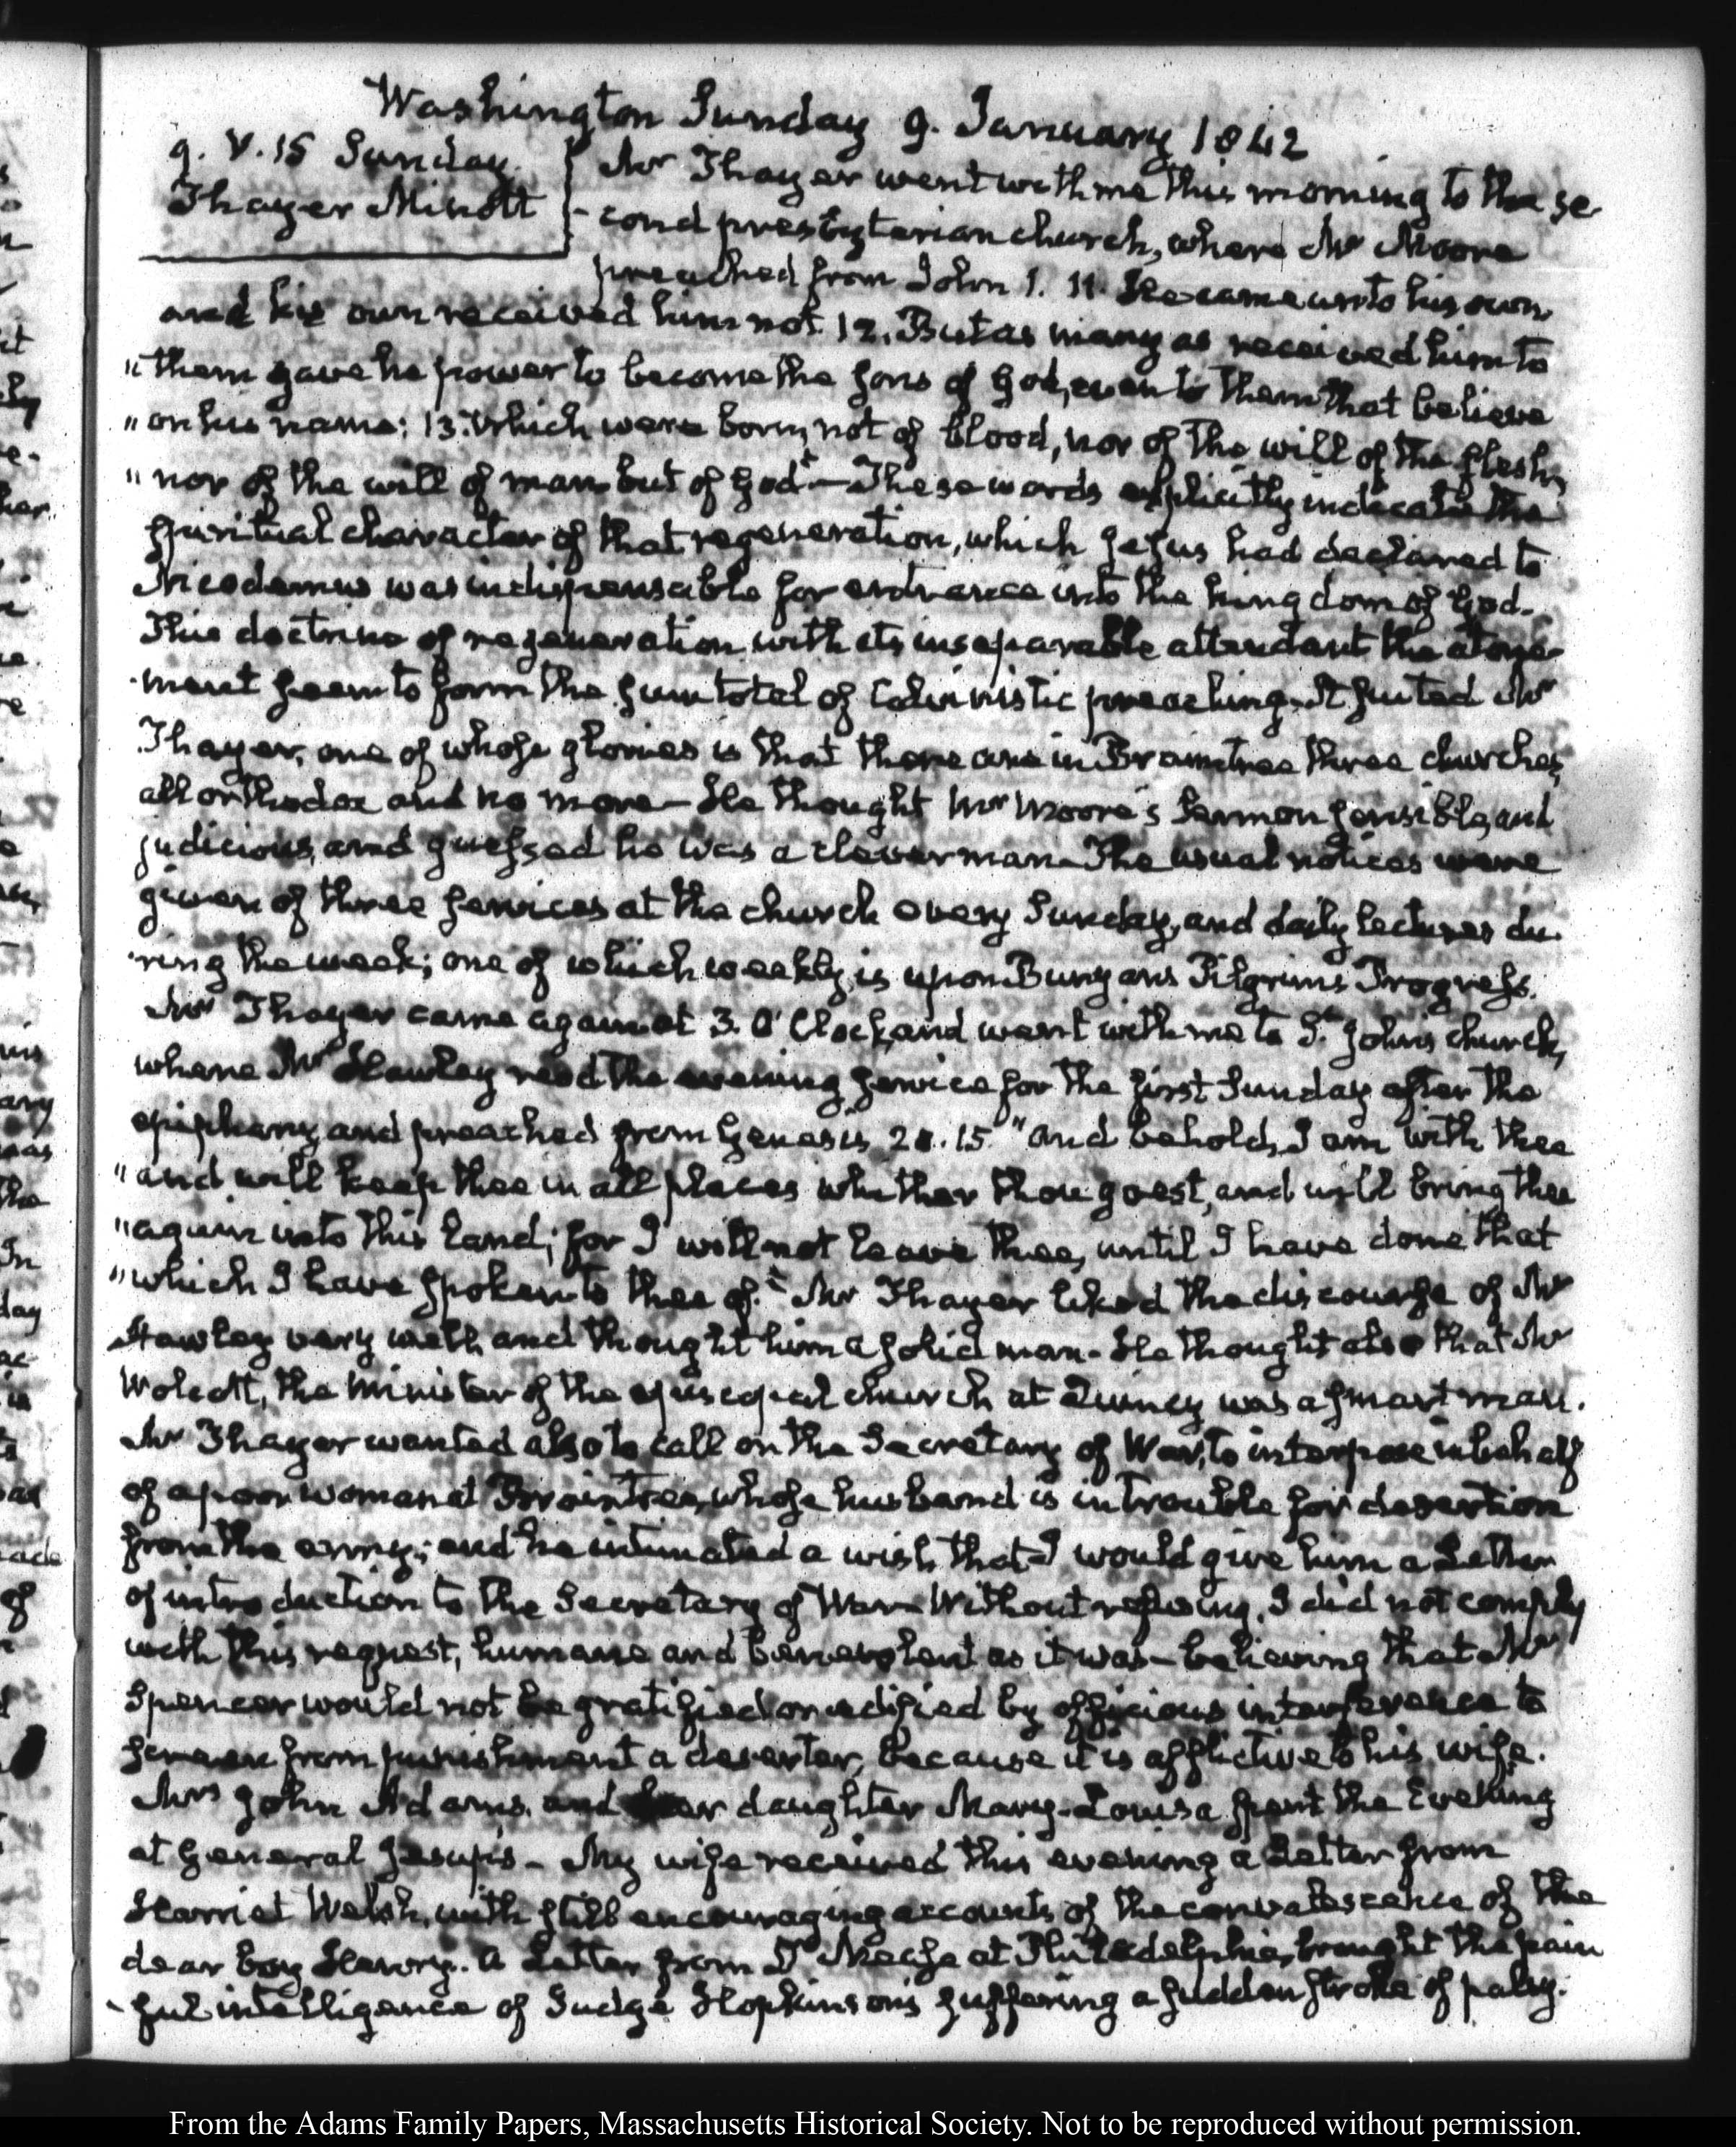 Washington Sunday 9. January 1842
9. V.15 Sunday.
Thayer Minott
Mr Thayer went with me this morning to the se-
cond presbyterian church, where Mr Moore
preached from John 1. 11. He came unto his own
and his own received him not. 12. But as many as received him to
"them gave he power to become the sons of God, even to them that believe
"on his name: 13. Which were born, not of blood, nor of the will of the flesh,
"nor of the will of man but of God"— These words explicitly indicate the
spiritual character of that regeneration, which Jesus had declared to
Nicodemus was indispensable for entrance into the kingdom of God.
This doctrine of regeneration with its inseparable attendant the atone-
ment seem to form the sum total of Calvinistic preaching. It suited Mr
Thayer, one of whose glories is that there are in Braintree three churches,
all orthodox and no more— He thought Mr Moore's Sermon sensible, and
judicious, and guessed he was a clever man. The usual notices were
given of three services at the church every Sunday, and daily lectures du-
ring the week; one of which weekly, is upon Bunyans Pilgrims Progress.
Mr Thayer came again at 3. O'Clock, and went with me to St. John's church,
where Mr Hawley read the evening service for the first Sunday after the
epiphany, and preached from Genesis 28.15. "and behold, I am with thee
"and will keep thee in all places whither thou goest, and will bring thee
"again into this land; for I will not leave thee, until I have done that
"which I have spoken to thee of." Mr Thayer liked the discourse of Mr
Hawley very well and thought him a solid man. He thought also that Mr
Wolcott, the Minister of the episcopal church at Quincy was a smart man.
Mr Thayer wanted also to call on the Secretary of War, to interpose in behalf
of a poor woman at Braintree, whose husband is in trouble for desertion
from the army; and he intimated a wish that I would give him a Letter
of introduction to the Secretary of War— Without refusing, I did not comply
with this request, humane and benevolent as it was— believing that Mr
Spencer would not be gratified or edified by officious interference to
screen from punishment a deserter, because it is afflictive to his wife.
Mrs John Adams, and her daughter Mary-Louisa spent the Evening
at General Jesup's— My wife received this evening a Letter from
Harriet Welsh, with still encouraging accounts of the convalescence of the
dear boy Henry. A Letter from Dr Mease at Philadelphia, brought the pain
ful intelligence of Judge Hopkinson's suffering a sudden stroke of palsy.
From the Adams Family Papers, Massachusetts Historical Society. Not to be reproduced without permission.